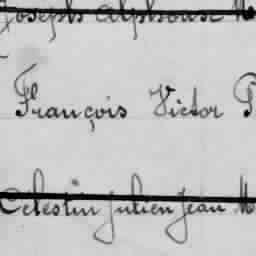 Joseph Alphonse M
François Victor P
Célestin Julien Jean M